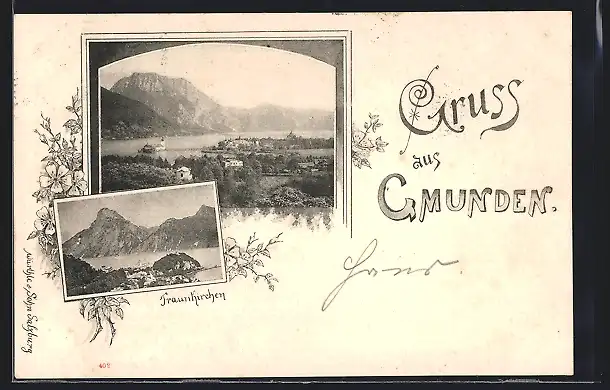 Gruss
aus
Gmunden.
Hans.
Traunkirchen
Würthle & Sohn Salzburg
402